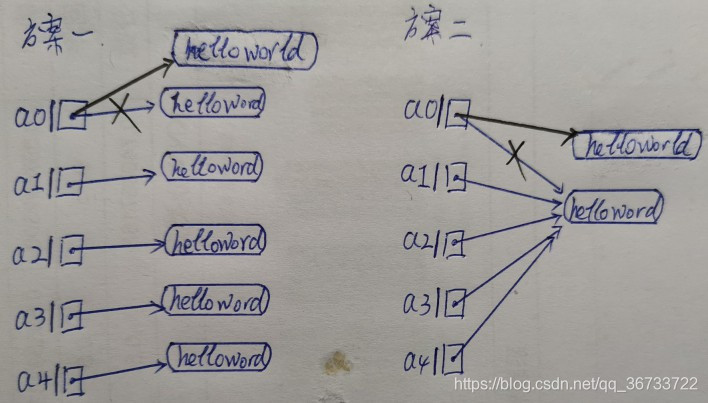 方案一
helloworld
a0
helloword
a1
helloword
a2
helloword
a3
helloword
a4
helloword
方案二
a0
helloworld
a1
helloword
a2
a3
a4
https://blog.csdn.net/qq_36733722